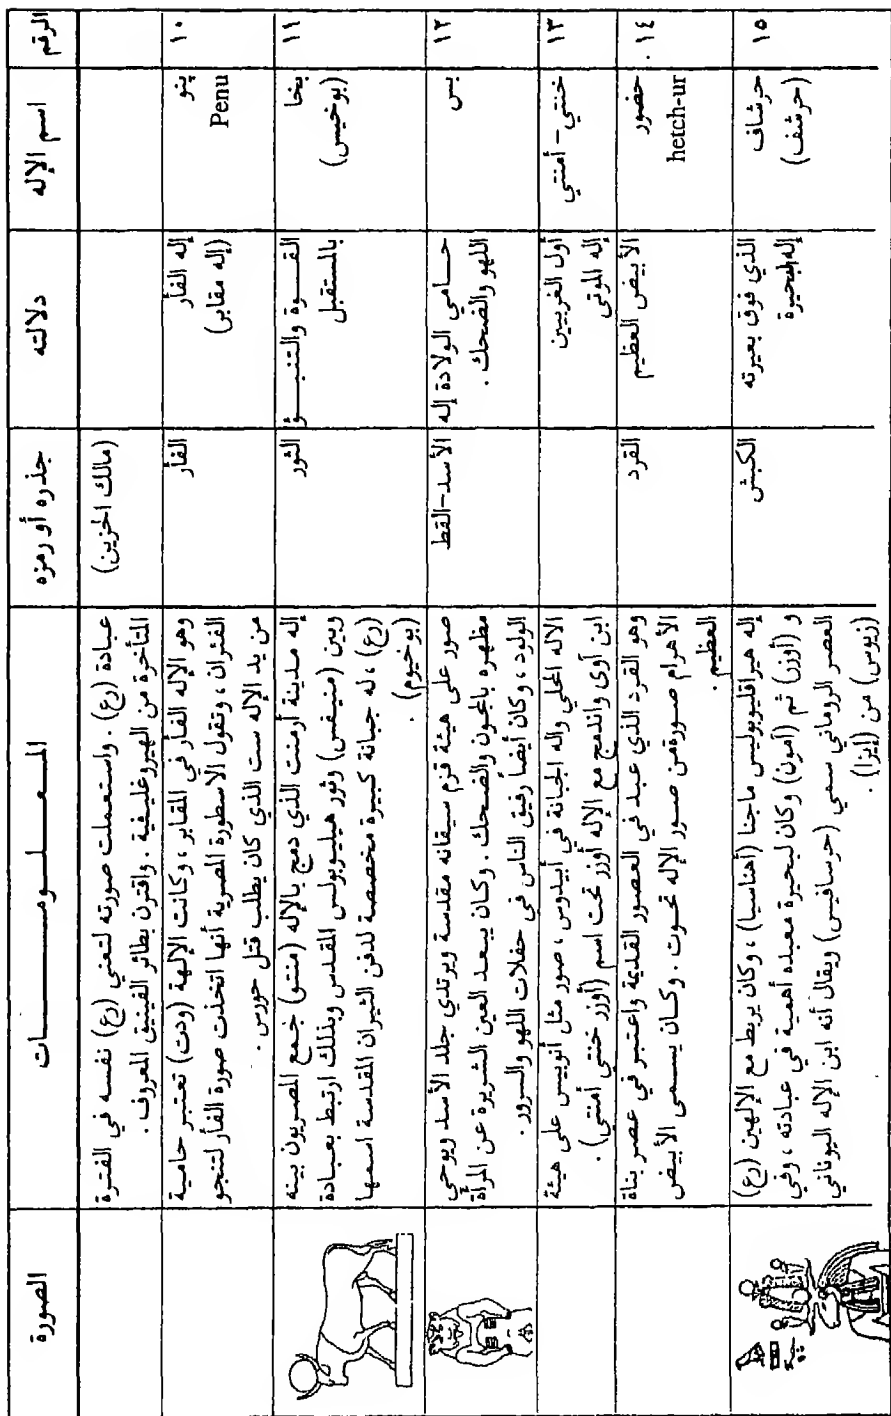 الرقم
اسم الإله
دلالته
جذره أو رمزه
المعلومات
الصورة
(مالك الحزين)
عبادة (رع) . واستعملت صورته لتعني (رع) نفسه في الفترة
المتأخرة من الهيروغليفية . واقترن بطائر الفينيق المعروف .
١٠
پنو
Penu
إله الفأر
(إله مقابر)
الفأر
وهو الإله الفأر في المقابر ، وكانت الإلهة (ودت) تعتبر حامية
الفئران ، وتقول الاسطورة المصرية أنها اتخذت صورة الفأر لتنجو
من يد الإله ست الذي كان يطلب قتل حورس .
١١
بخا
(بوخيس)
القوة والتنبؤ
بالمستقبل
الثور
إله مدينة أرمنت الذي دمج بالإله (منتو) جمع المصريون بينه
وبين (منيفس) وثور هيليوبولس المقدس وبذلك ارتبط بعبادة
(رع) ، له جبانة كبيرة مخصصة لدفن الثيران المقدسة اسمها
(بوخيوم) .
١٢
بس
حامي الولادة إله
اللهو والضحك .
الأسد-القط
صور على هيئة قزم سيقانه مقدسة ويرتدي جلد الأسد ويوحي
مظهره بالمجون والضحك . وكان يبعد العين الشريرة عن المرأة
الولود ، وكان أيضاً رفيق الناس في حفلات اللهو والسرور .
١٣
خنتي - أمنتي
أول الغربيين
إله الموتى
الاله المحلي واله الجبانة في أبيدوس ، صور مثل أنوبيس على هيئة
ابن آوى واندمج مع الإله أوزر تحت اسم (أوزر خنتي أمنتي) .
١٤
حضور
hetch-ur
الأبيض العظيم
القرد
وهو القرد الذي عبد في العصور القديمة واعتبر في عصر بناة
الأهرام صورة من صور الإله تحوت . وكان يسمى الأبيض
العظيم .
١٥
حرشاف
(حرشف)
الذي فوق بعيرته
إله البحيرة
الكبش
إله هيراقليوبوليس ماجنا (أهناسيا) ، وكان يربط مع الإلهين (رع)
و (أوزر) ثم (آمون) وكان لبحيرة معبده أهمية في عبادته ، وفي
العصر الروماني سمي (حرسافيس) ويقال أنه ابن الإله اليوناني
(زيوس) من (إيزا) .